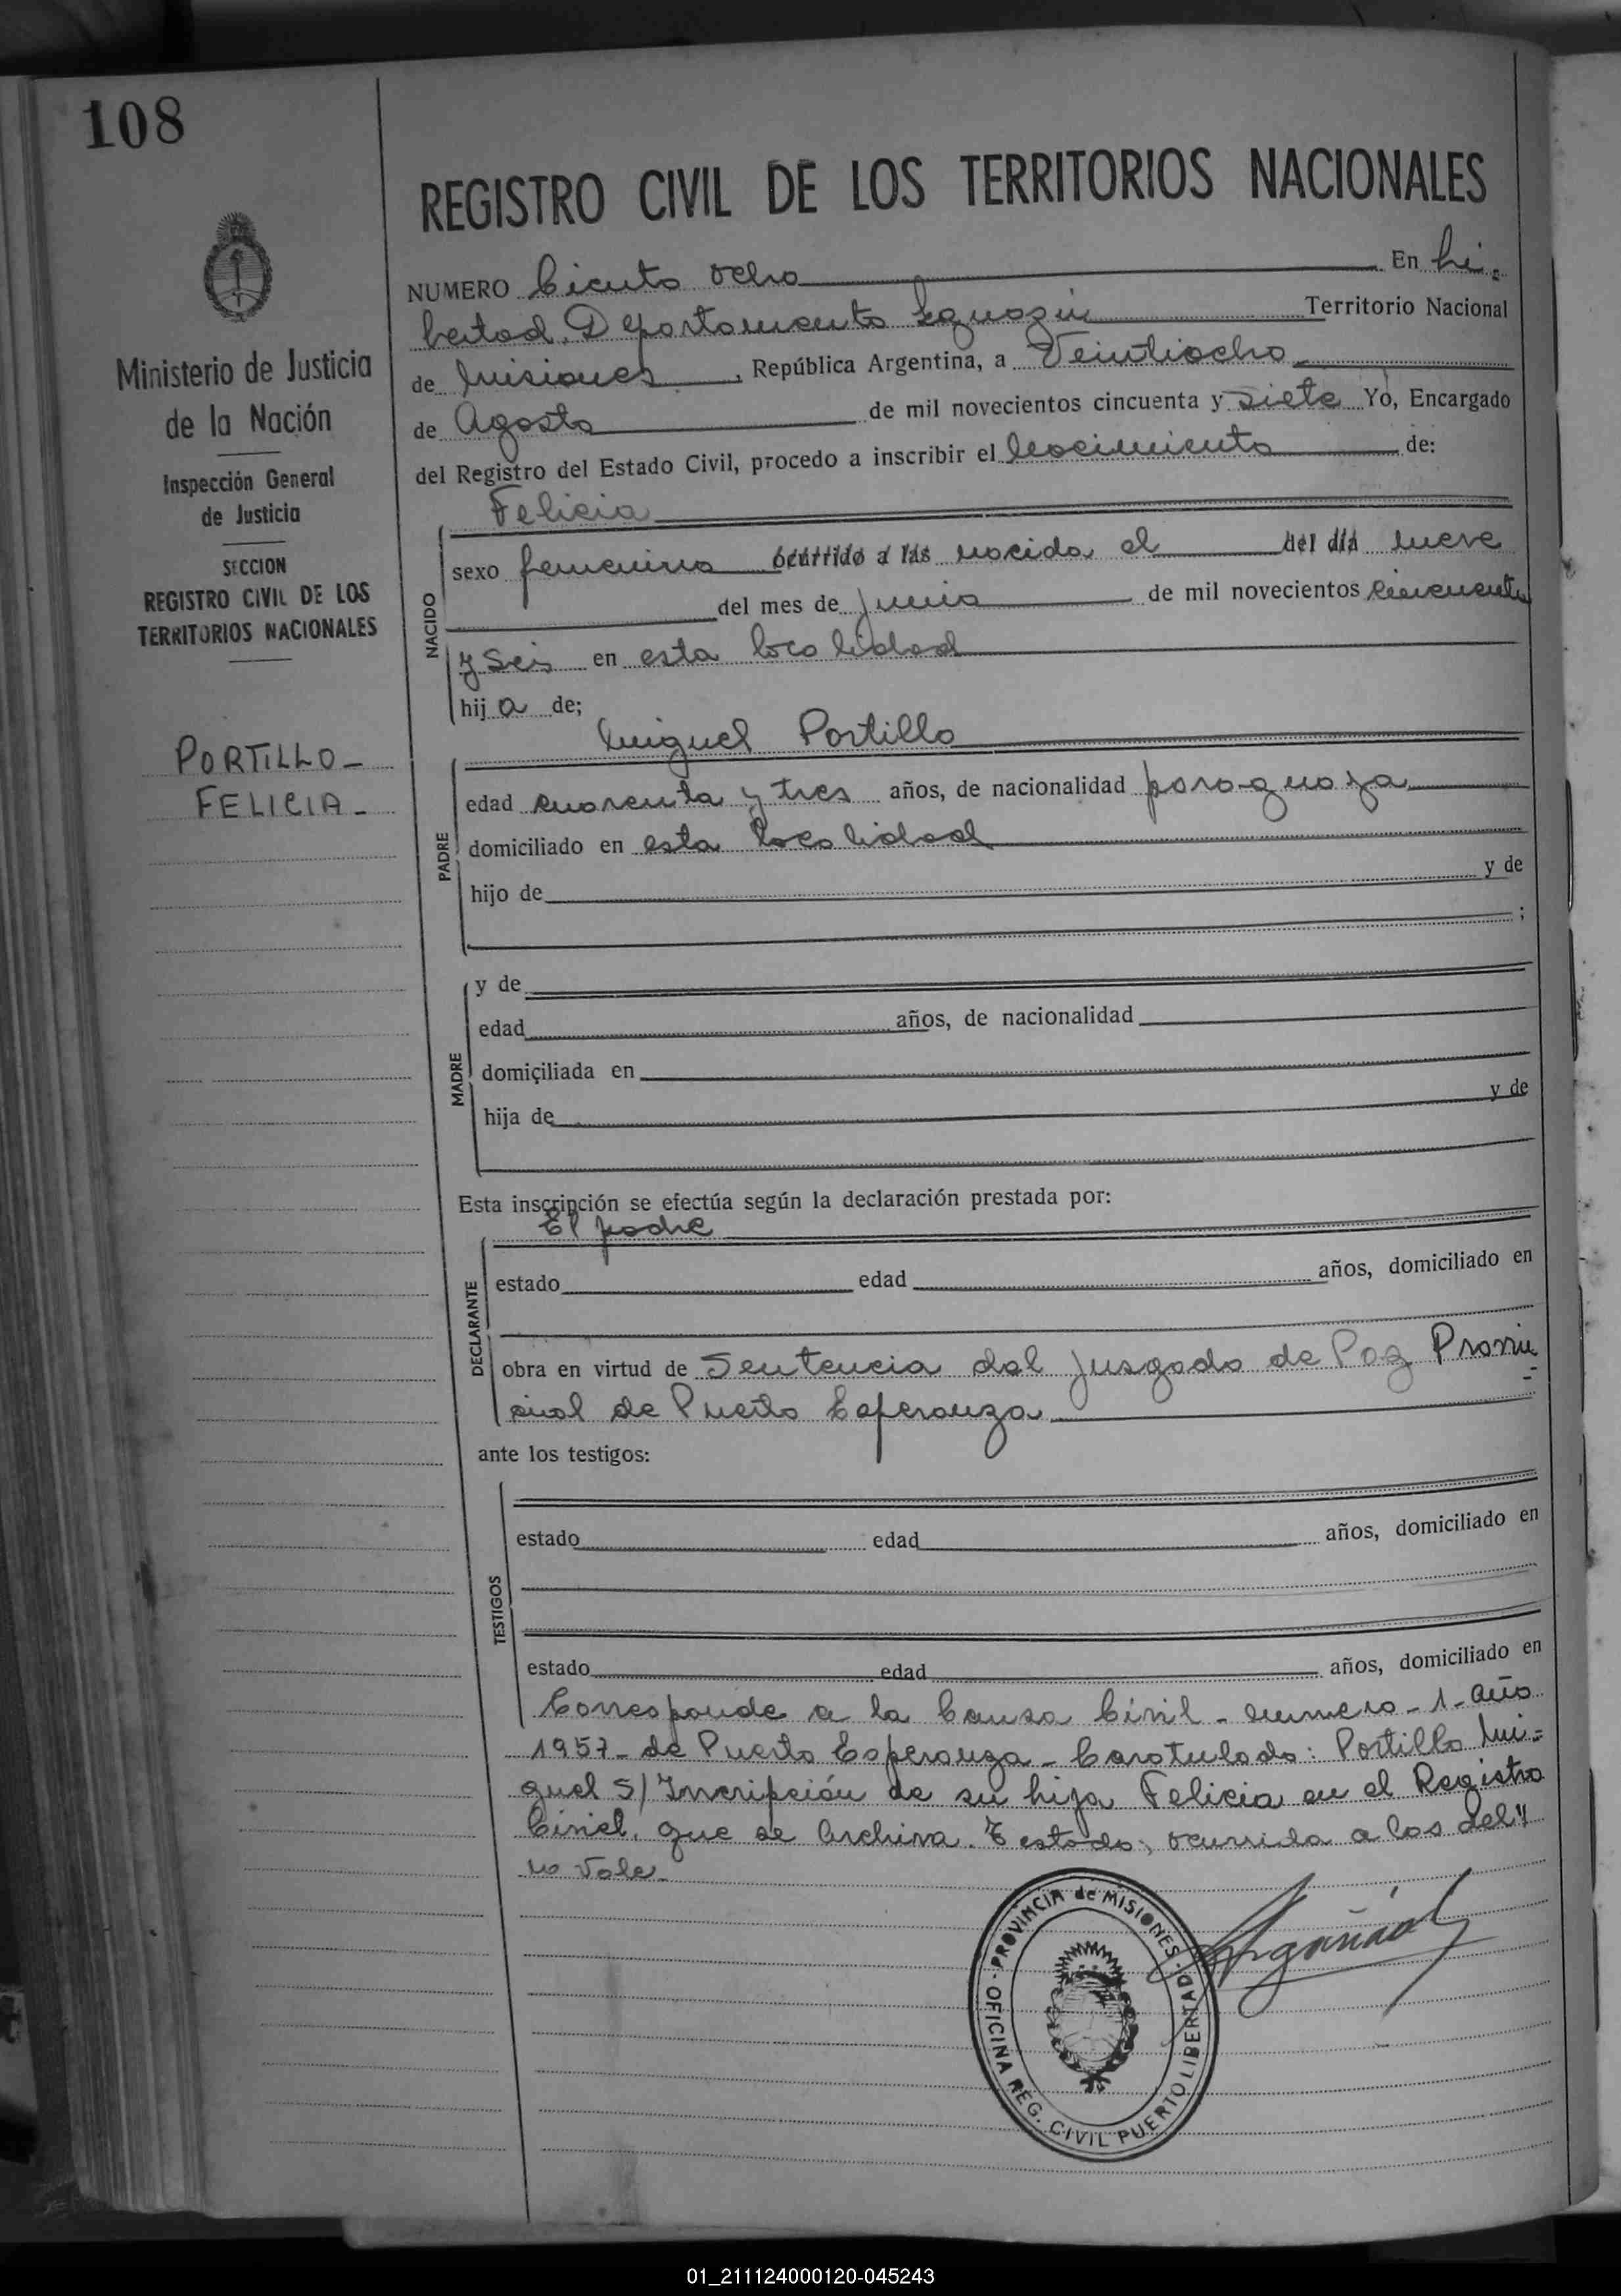 108
REGISTRO CIVIL DE LOS TERRITORIOS NACIONALES
Ministerio de Justicia
de la Nación
Inspección General
de Justicia
SECCION
REGISTRO CIVIL DE LOS
TERRITORIOS NACIONALES
PORTILLO-
FELICIA-
NUMERO Ciento ocho En Li-
bertad, Departamento Iguazú Territorio Nacional
de Misiones, República Argentina, a Veintiocho
de Agosto de mil novecientos cincuenta y siete Yo, Encargado
del Registro del Estado Civil, procedo a inscribir el Nacimiento de:
Felicia
NACIDO
sexo femenino ocurrido a las nacida el del día nueve
del mes de Junio de mil novecientos cincuenta
y Seis en esta localidad
hij a de;
Miguel Portillo
PADRE
edad cuarenta y tres años, de nacionalidad paraguaya
domiciliado en esta localidad
hijo de y de
;
MADRE
y de
edad años, de nacionalidad
domiciliada en
hija de y de
Esta inscripción se efectúa según la declaración prestada por:
El padre
DECLARANTE
estado edad años, domiciliado en
obra en virtud de Sentencia del Jusgado de Paz Provin
cial de Puerto Esperanza
ante los testigos:
TESTIGOS
estado edad años, domiciliado en
estado edad años, domiciliado en
Corresponde a la Causa Civil - numero - 1 - año
1957 - de Puerto Esperanza - Caratulado: Portillo Mi=
guel S/ Inscripción de su hija Felicia en el Registro
Civil, que se Archiva. Testado; ocurrido a las del"
no Vale-
PROVINCIA de MISIONES
OFICINA REG. CIVIL PUERTO LIBERTAD
01_211124000120-045243